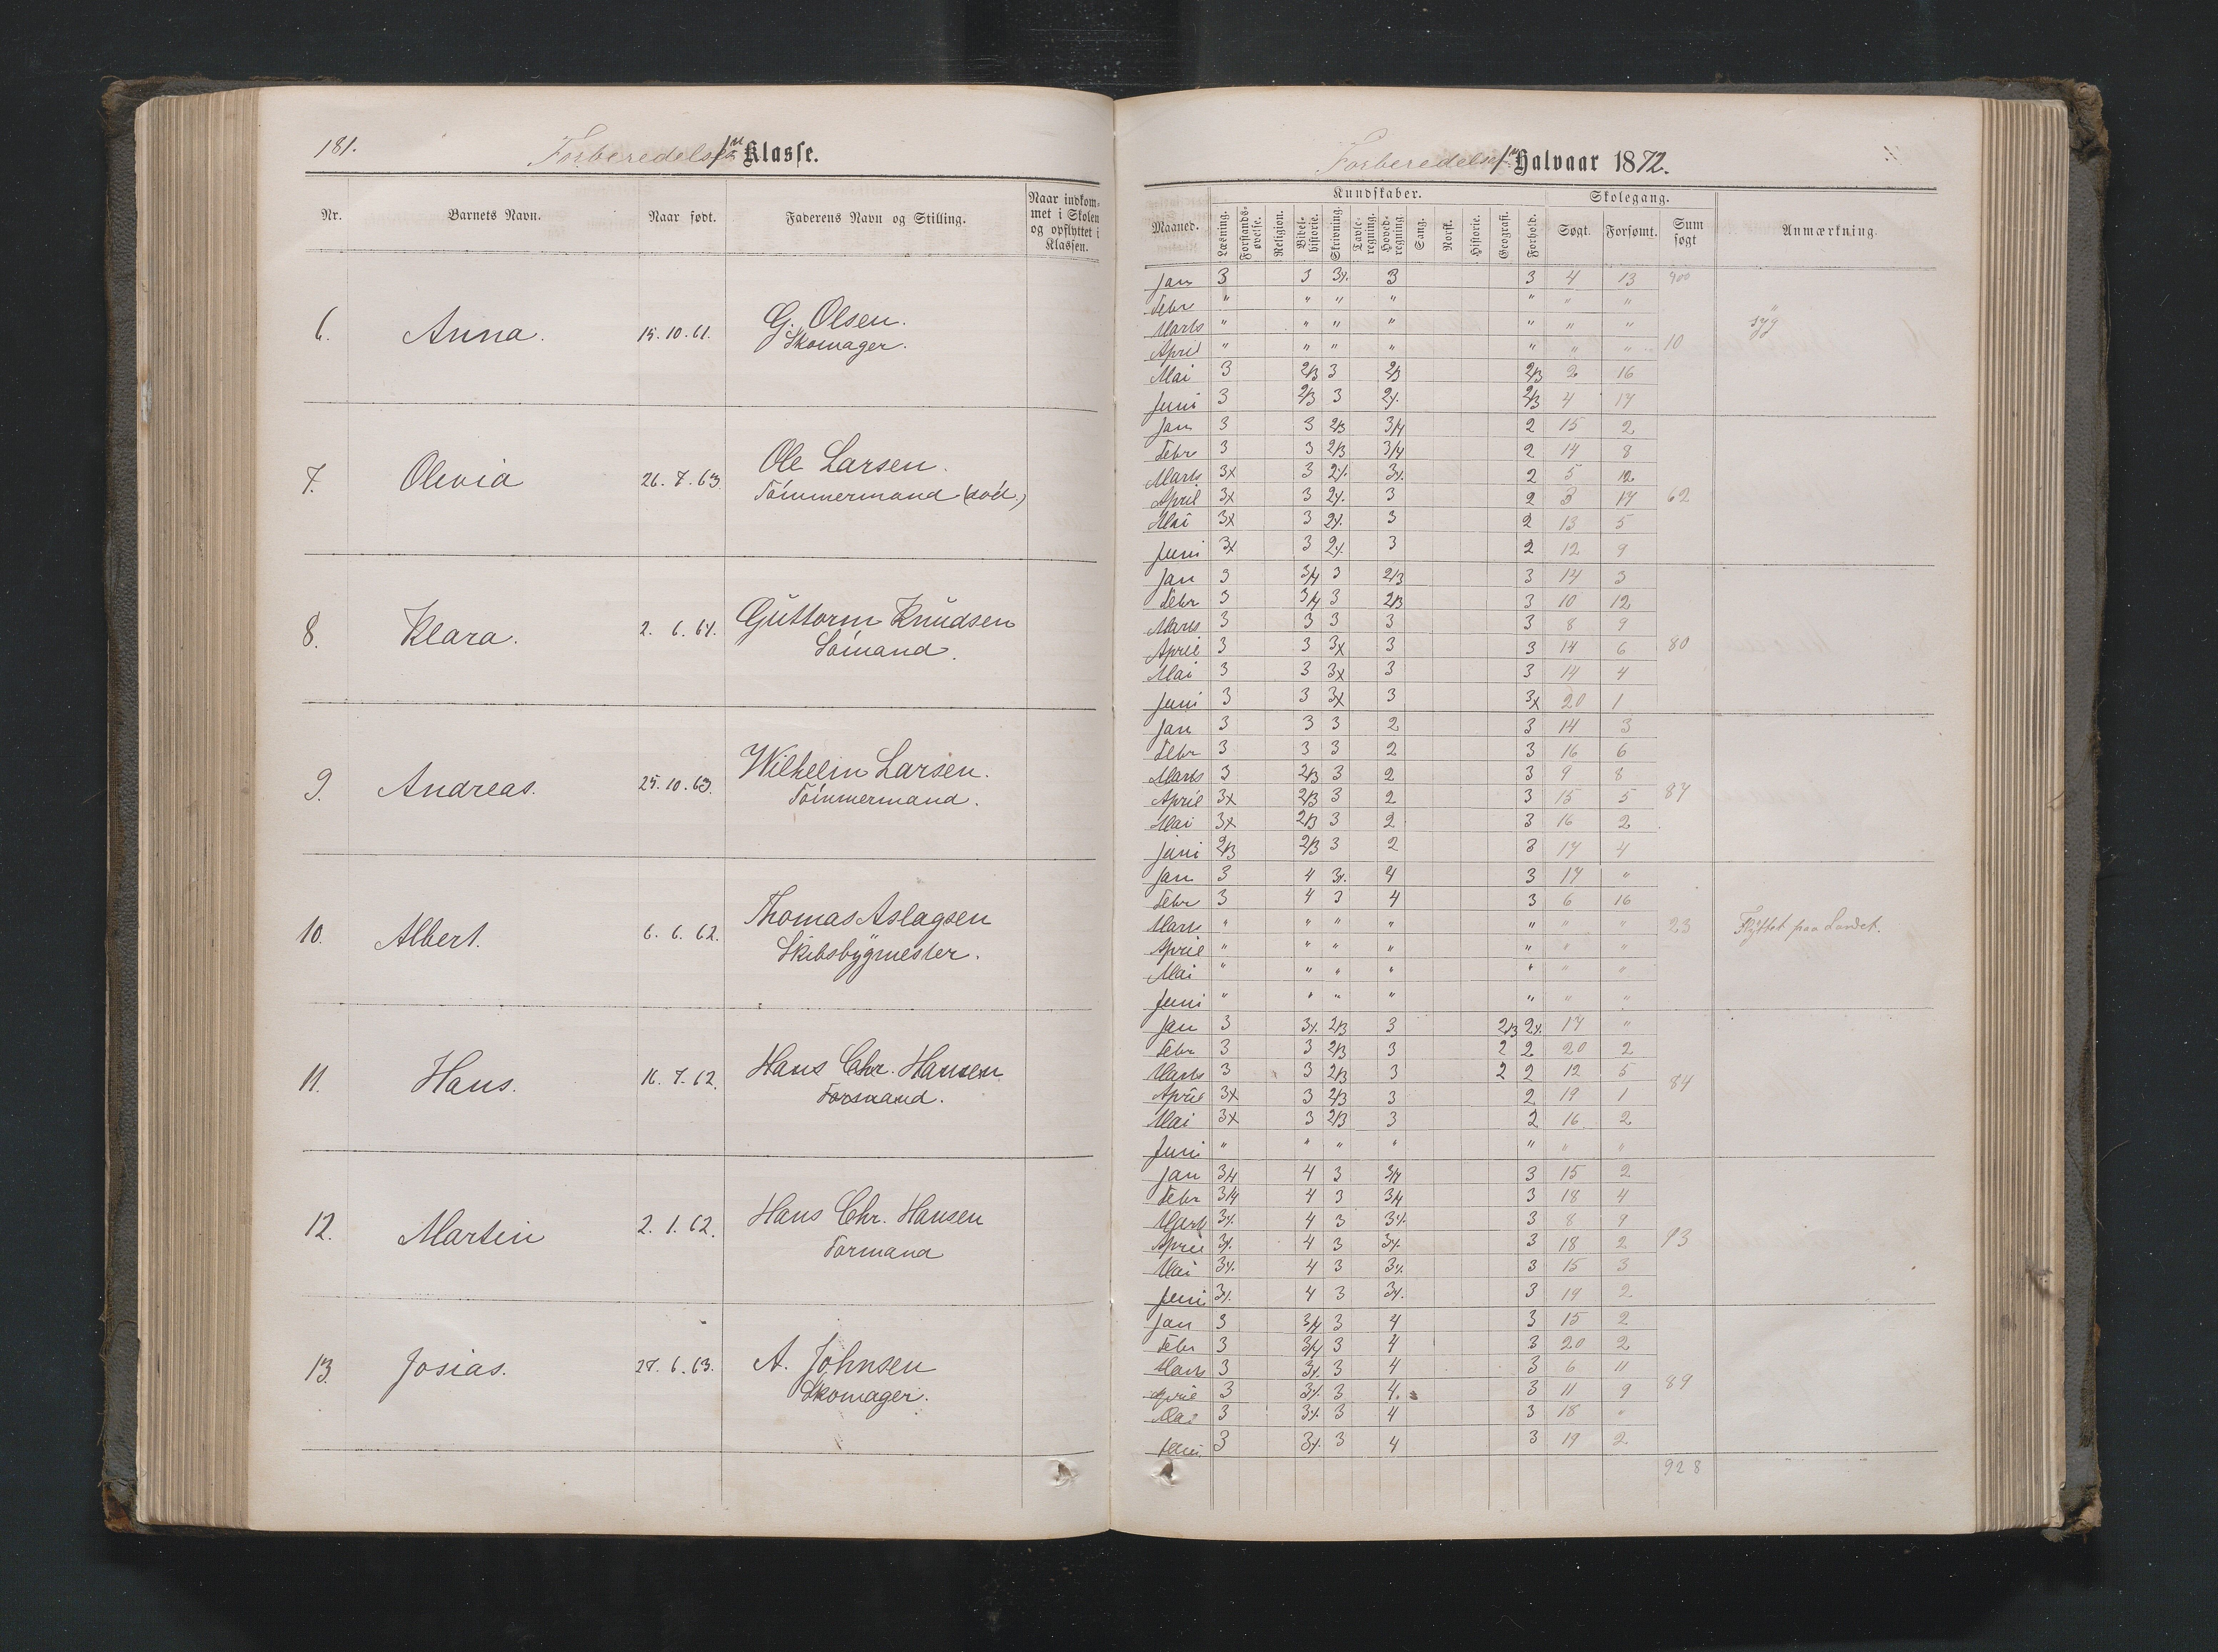 181.
Forberedelses Klasse.
Nr. Barnets Navn. Naar født. Faderens Navn og Stilling. Naar indkom-
met i Skolen
og opflyttet i
Klassen.
6. Anna. 15. 10. 61. G. Olsen.
Skomager.
7. Olevia 26. 7. 63. Ole Larsen.
Tömmermand (död.)
8. Klara. 2. 6. 64. Guttorm Knudsen
Sömand.
9. Andreas. 25. 10. 63. Wilhelm Larsen.
Tömmermand.
10. Albert. 6. 6. 62. Thomas Aslagsen
Skibsbygmester.
11. Hans. 16. 7. 62. Hans Chr. Hansen
Formand.
12. Martin 2. 1. 62. Hans Chr. Hansen
Formand
13. Josias. 27. 6. 63. A. Johnsen
Skomager.
Forberedelses Halvaar 1872.
Kundskaber. Skolegang.
Maaned. Læsning. Forstands-øvelse. Religion. Bibel-historie. Skrivning. Tavle-regning. Hoved-regning. Sang. Norsk. Historie. Geografi. Forhold. Søgt. Forsømt. Sum søgt Anmærkning.
Jan 3 3 3x. 3 3 4 13 400
Febr " " " " " " "
Marts " " " " " " " syg
April " " " " " " " 10
Mai 3 2/3 3 2/3 2/3 2 16
Juni 3 2/3 3 2x. 2/3 4 17
Jan 3 3 2/3 3/4 2 15 2
Febr 3 3 2/3 3/4 2 14 8
Marts 3x 3 2x. 3x. 2 5 12
April 3x 3 2x. 3 2 3 17 62
Mai 3x 3 2x. 3 2 13 5
Juni 3x 3 2x. 3 2 12 9
Jan 3 3/4 3 2/3 3 14 3
Febr 3 3/4 3 2/3 3 10 12
Marts 3 3 3 3 3 8 9
April 3 3 3x 3 3 14 6 80
Mai 3 3 3x 3 3 14 4
Juni 3 3 3x 3 3x 20 1
Jan 3 3 3 2 3 14 3
Febr 3 3 3 2 3 16 6
Marts 3 2/3 3 2 3 9 8
April 3x 2/3 3 2 3 15 5 87
Mai 3x 2/3 3 2 3 16 2
Juni 2/3 2/3 3 2 3 17 4
Jan 3 4 3x. 4 3 17 "
Febr 3 4 3 4 3 6 16
Marts " " " " " " " 23 Flyttet paa Landet.
April " " " " " " "
Mai " " " " " " "
Juni " " " " " " "
Jan 3 3x. 2/3 3 2/3 2x. 17 "
Febr 3 3 2/3 3 2 2 20 2
Marts 3 3 2/3 3 2 2 12 5
April 3x 3 2/3 3 2 19 1 84
Mai 3x 3 2/3 3 2 16 2
Juni " " " " " " "
Jan 3/4 4 3 3/4 3 15 2
Febr 3/4 4 3 3/4 3 18 4
Marts 3x. 4 3 3x. 3 8 9
April 3x. 4 3 3x. 3 18 2 93
Mai 3x. 4 3 3x. 3 15 3
Juni 3x. 4 3 3x. 3 19 2
Jan 3 3/4 3 4 3 15 2
Febr 3 3/4 3 4 3 20 2
Marts 3 3x. 3 4 3 6 11
April 3 3x. 3 4. 3 11 9 89
Mai 3 3x. 3 4 3 18 "
Juni 3 3x. 3 4 3 19 2
928